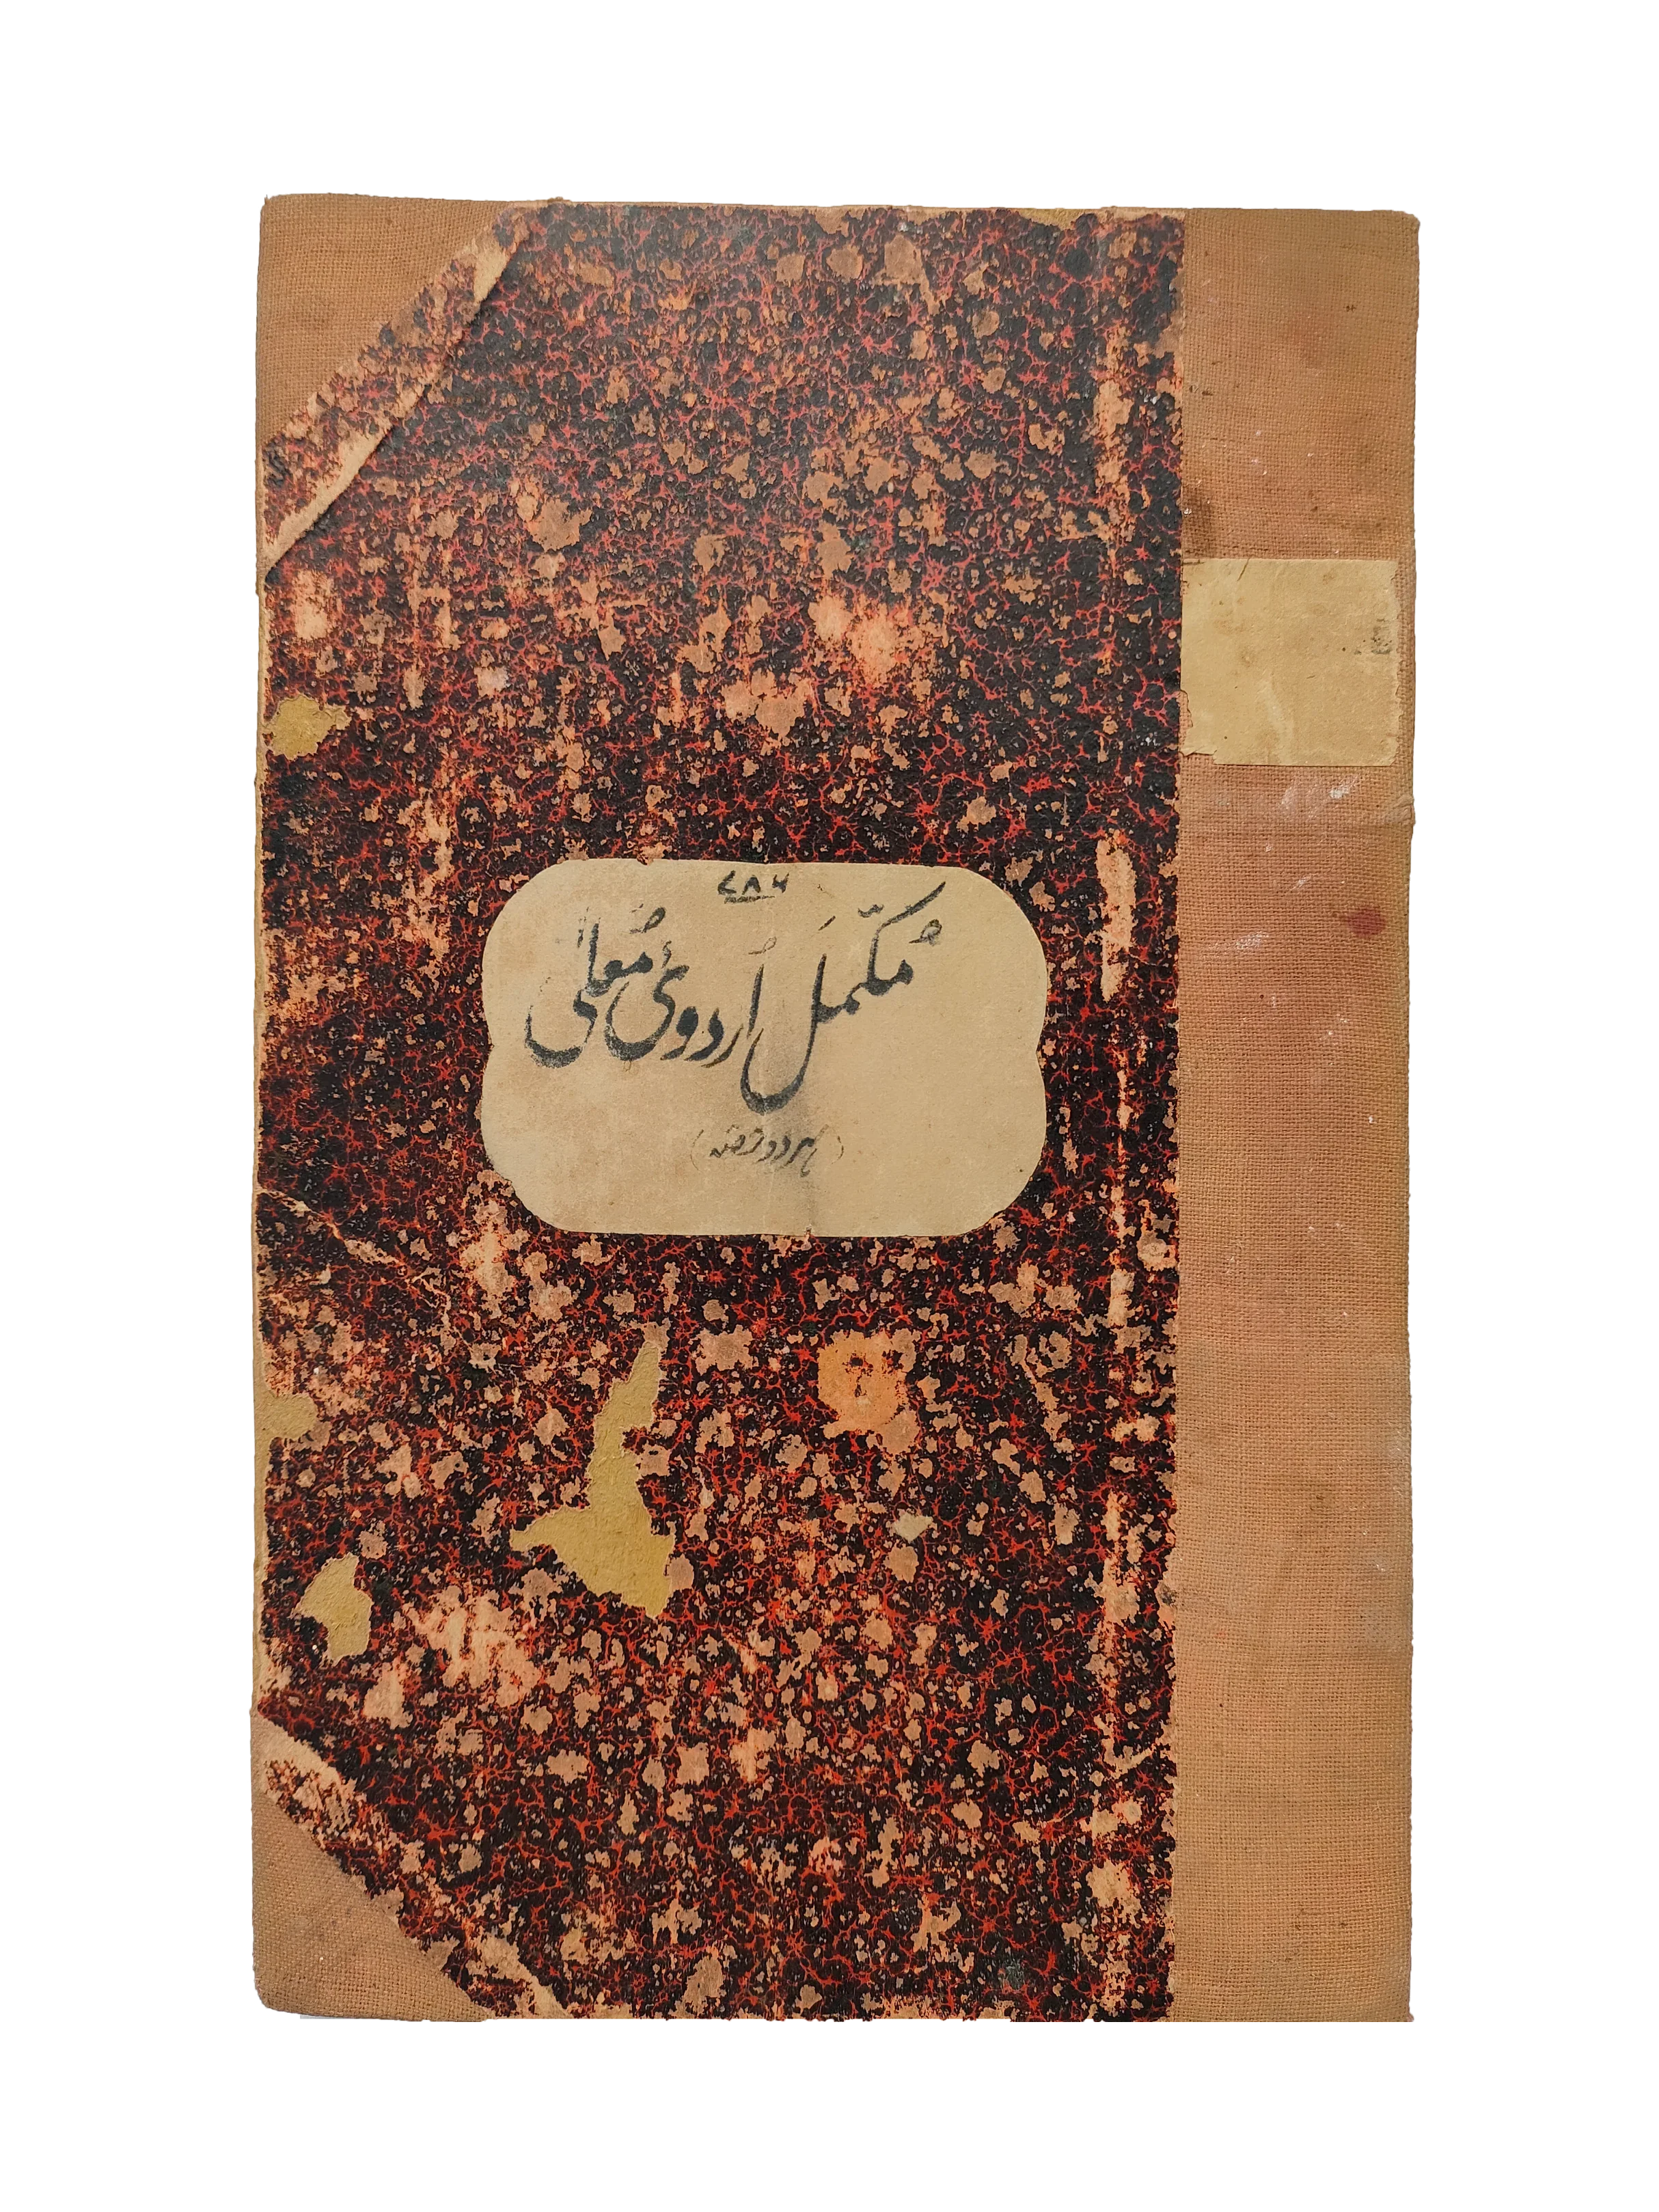 ۷۸۶
مُکمّلَ اُردوئ مُعلیٰ
(ہر دو حصّہ)